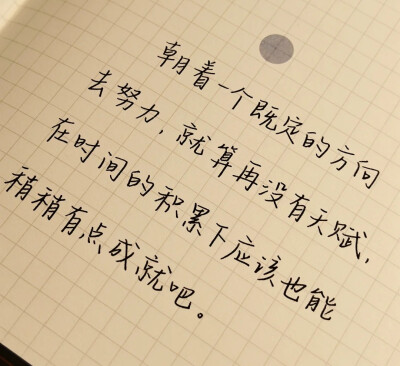 朝着一个既定的方向
去努力，就算再没有天赋，
在时间的积累下应该也能
稍稍有点成就吧。